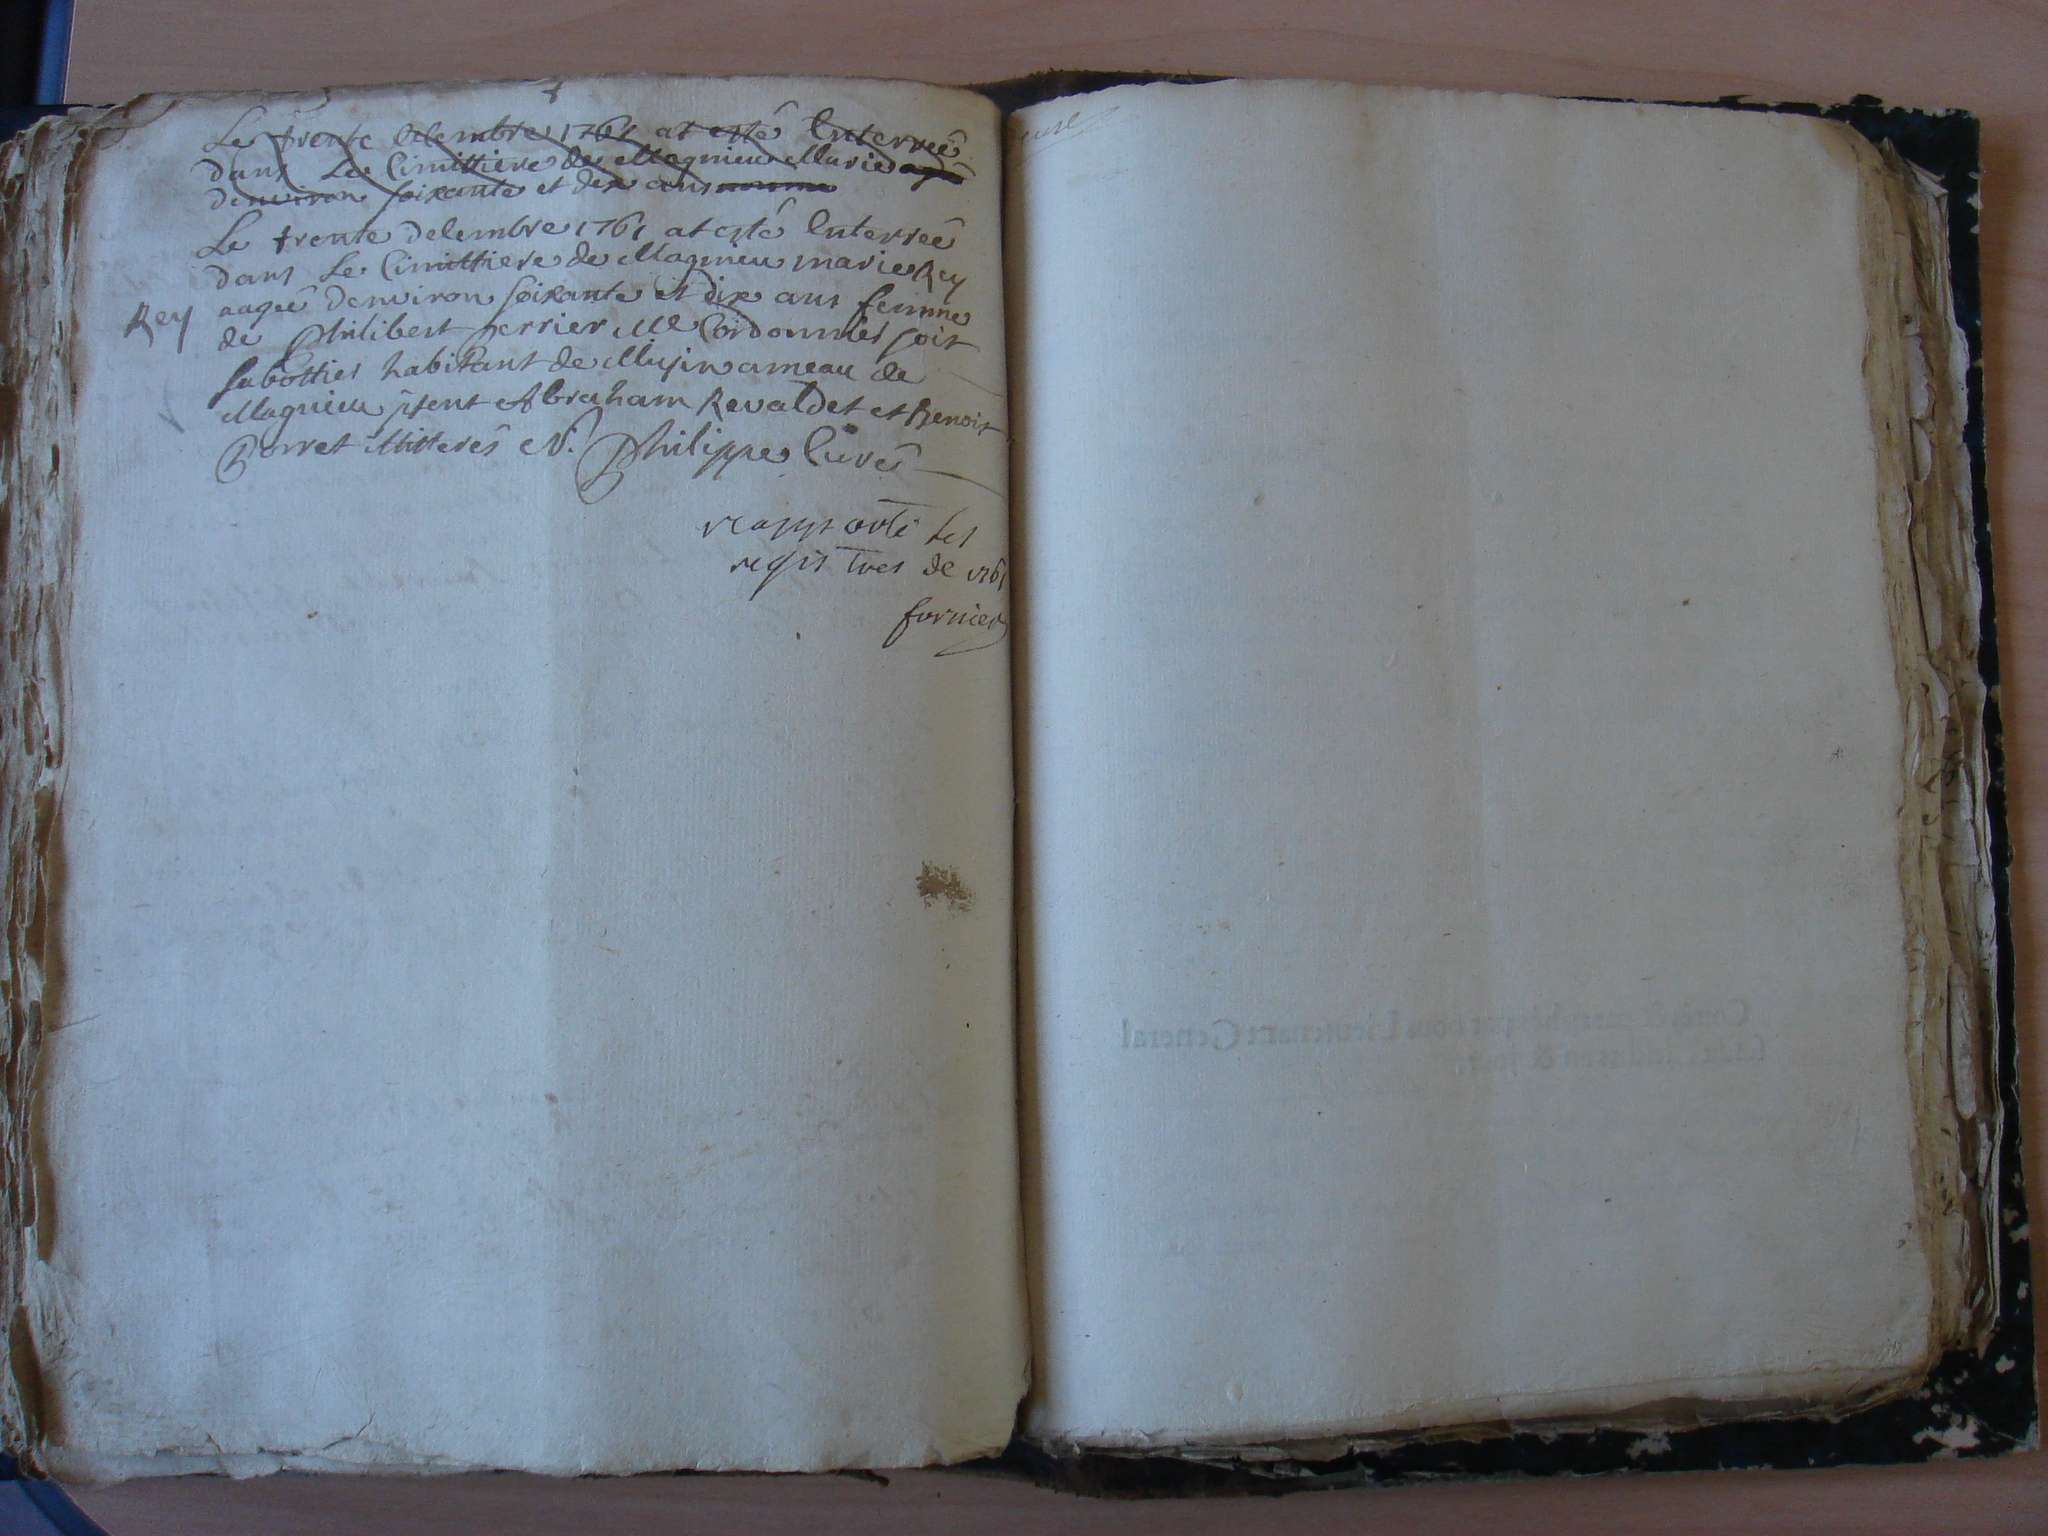 Le trente decembre 1761 at esté Enterreé
dans Le Cimittiere de Magnieu Marie
denviron soixante et dix ans
Le trente decembre 1761 at esté Enterreé
dans Le Cimittiere de Magnieu marie Rey
Rey
aageé denviron soixante et dix ans femme
de Philibert perrier Me Cordonnies soit
sabotties habitant de Musin ameau de
Magnieu pṡent Abraham Revaldet et Benoit
Borret Illitterés N. Philippe Curé
rapporté les
registres de 1761
fornier